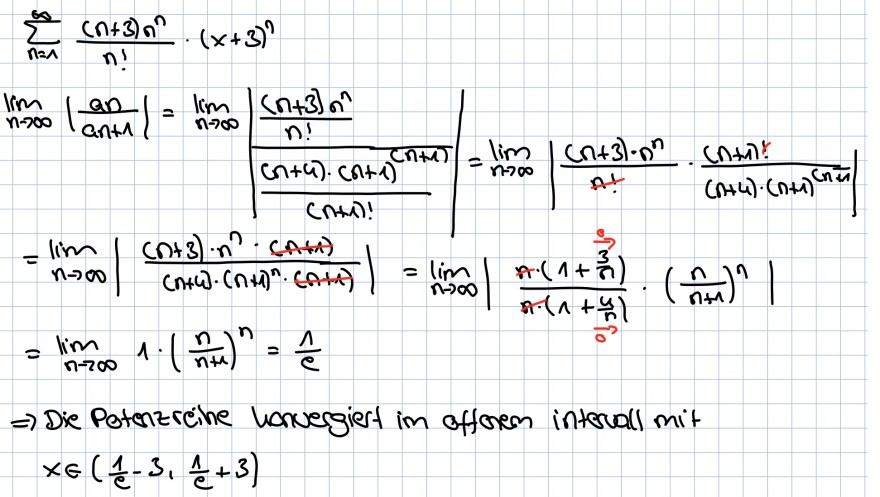 ∑_{n=1}^{∞} \frac{(n+3) n^n}{n!} · (x+3)^n
lim_{n→∞} |\frac{an}{an+1}| = lim_{n→∞} |\frac{\frac{(n+3) n^n}{n!}}{\frac{(n+4)·(n+1)^{(n+1)}}{(n+1)!}}| = lim_{n→∞} |\frac{(n+3)·n^n}{n!} · \frac{(n+1)!}{(n+4)·(n+1)^{(n+1)}}|
= lim_{n→∞} |\frac{(n+3)·n^n·(n+1)}{(n+4)·(n+1)^n·(n+1)}| = lim_{n→∞} |\frac{n·(1+\frac{3}{n}) →0}{n·(1+\frac{4}{n}) →0} · (\frac{n}{n+1})^n|
= lim_{n→∞} 1·(\frac{n}{n+1})^n = \frac{1}{e}
⇒ Die Potenzreihe konvergiert im offenem intervall mit
x∈(\frac{1}{e}-3, \frac{1}{e}+3)